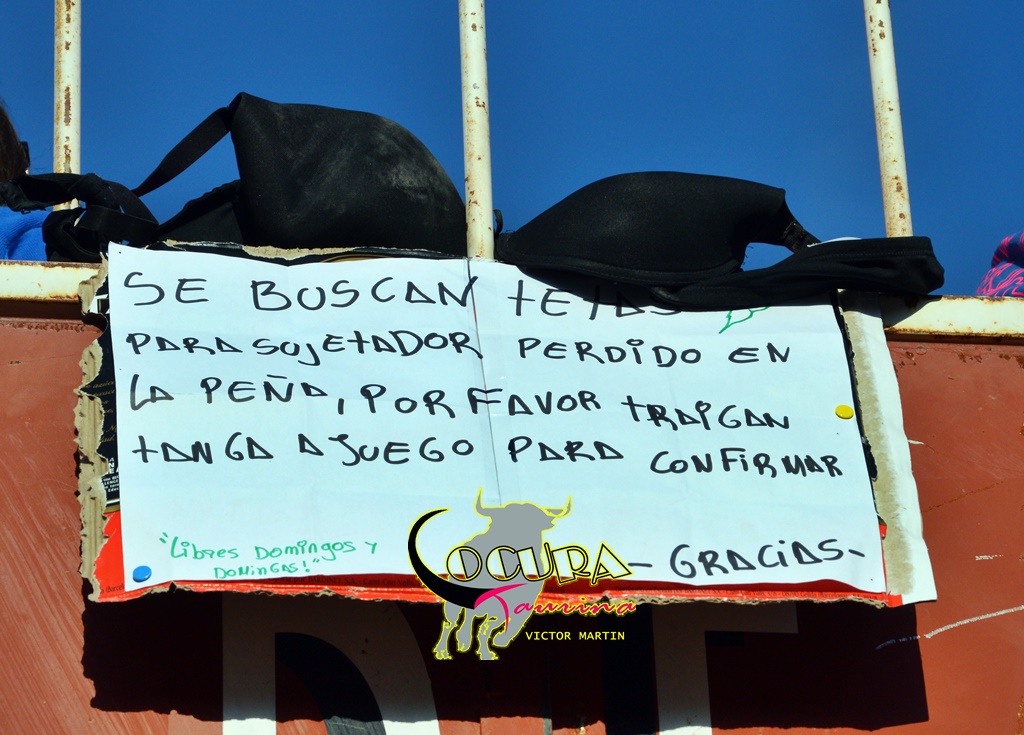 SE BUSCAN TETAS
PARA SUJETADOR PERDIDO EN
LA PEÑA, POR FAVOR TRAIGAN
TANGA A JUEGO PARA CONFIRMAR
"Libres Domingos y
Domingas!"
- GRACIAS -
LOCURA
Taurina
VICTOR MARTIN